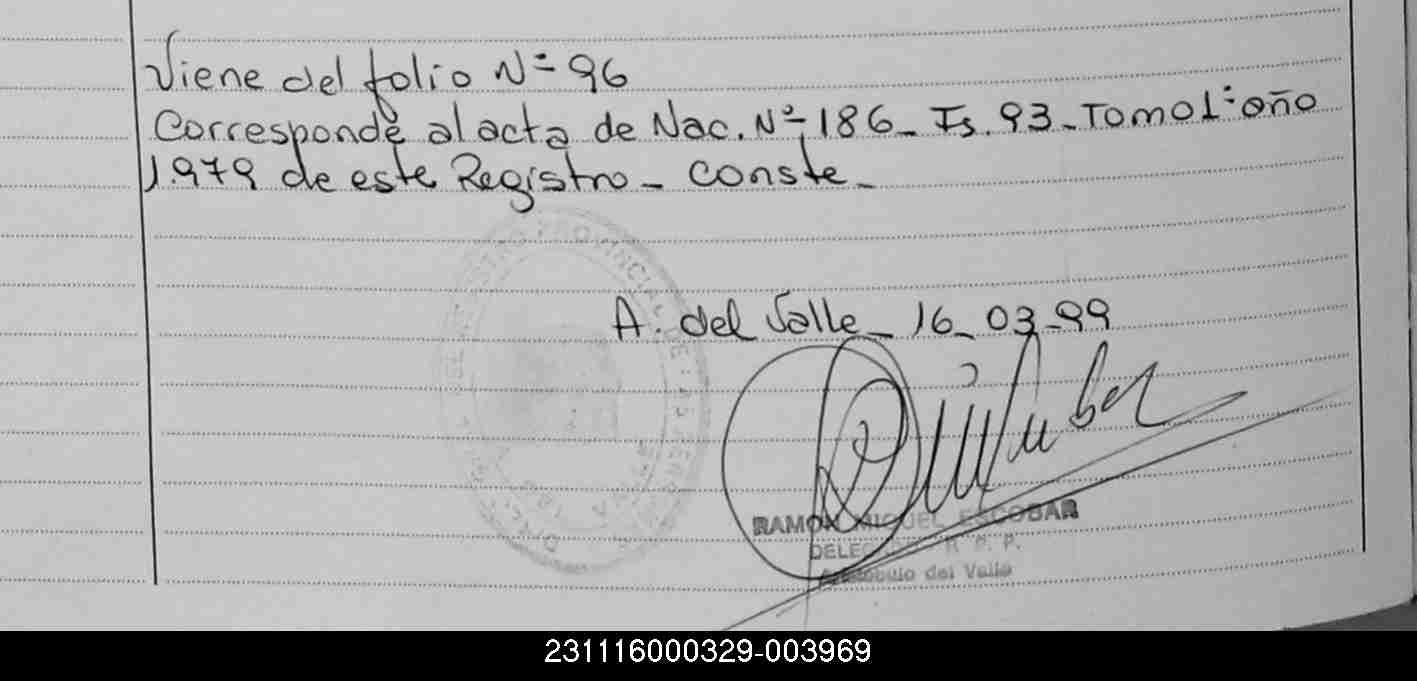 Viene del folio Nº 96
Corresponde al acta de Nac. Nº 186_ Fs. 93_Tomo 1º año
1.979 de este Registro_ Conste_
A. del Valle_ 16_03_99
RAMON MIGUEL ESCOBAR
DELEGADO R. P. P.
Aristobulo del Valle
231116000329-003969